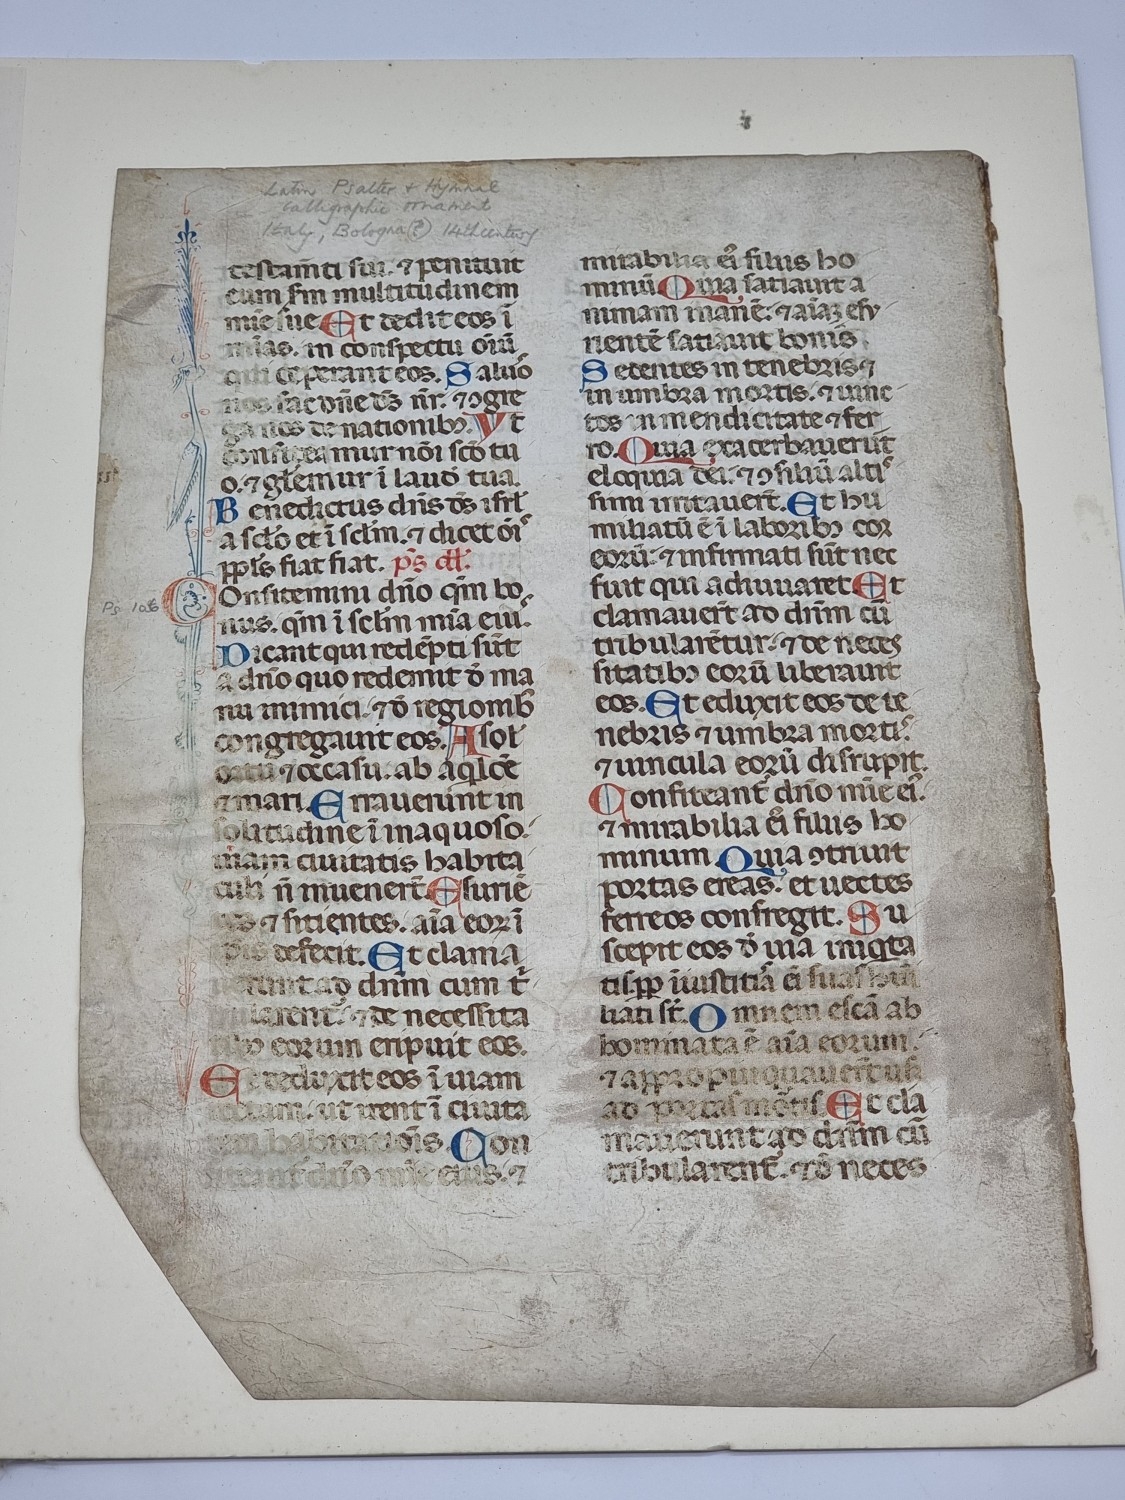 Latin Psalter + Hymnal
calligraphic ornament
Italy, Bologna(?) 14th century
testam̄ti sui. ⁊ penituit
eum sm̄ multitudinem
mīe sue Et dedit eos ī
mīas. in conspectu oīū
qui ceperant eos. Saluo
nos fac dn̄e ds̄ nr̄. ⁊ ꝯgre
ga nos de nationibꝫ. Vt
confiteamur nōi scō tu
o. ⁊ glēmur ī laud tua.
Benedictus dn̄s ds̄ isrl̄
a sclō et ī sclm̄. ⁊ dicet oīs
ppl̄s fiat fiat. ps̄ dd̄.
Ps 106
Confitemini dn̄o qm̄ bo
nus. qm̄ ī sclm̄ mīa eius
Dicant qui redēpti sūt
a dn̄o quo redemit d̄ ma
nu inimici. ⁊ d̄ regionib
congregauit eos. A sol
ortu ⁊ occasu. ab aq̄lōe
⁊ mari. Errauerunt in
solitudine ī inaquoso.
uiam ciuitatis habita
culi n̄ inuenert̄. Esuriē
tes ⁊ sitientes. aīa eoꝝ ī
ip̄is defecit. Et clama
uerunt ad dn̄m cum t̄
bularent̄. ⁊ de necessita
tibꝫ eorum eripuit eos.
Et deduxit eos ī uiam
rectam. ut irent ī ciuita
tem habitatiōis. Con
fiteant̄ dn̄o mīe eius. ⁊
mirabilia ei᾿ filiis ho
minū Quia satiauit a
nimam inanē. ⁊ aīaꝫ esu
rientē satiauit bonis
Sedentes in tenebris ⁊
in umbra mortis. ⁊ uinc
tos in mendicitate ⁊ fer
ro. Quia exacerbauerūt
eloquia dei. ⁊ ꝯsiliū altis
simi irritauert̄. Et hu
miliatū ē ī laboribꝫ cor
eorū. ⁊ infirmati sūt nec
fuit qui adiuuaret Et
clamauert̄ ad dn̄m cū
tribularētur. ⁊ de neces
sitatibꝫ eorū liberauit
eos. Et eduxit eos de te
nebris ⁊ umbra mortis
⁊ uincula eorū disrupit.
Confiteant̄ dn̄o mīe ei᾿.
⁊ mirabilia ei᾿ filiis ho
minum Quia ꝯtriuit
portas ereas. et uectes
ferreos confregit. Su
scepit eos d̄ uia iniq̄ta
tis. ꝓp̄ iniustitia ei suas hūi
liati st̄. Omnem escā ab
hominata ē aīa eorum.
⁊ appropinquauert̄ usꝫ
ad portas mōtis Et cla
mauerunt ad dn̄m cū
tribularent̄. ⁊ d̄ neces